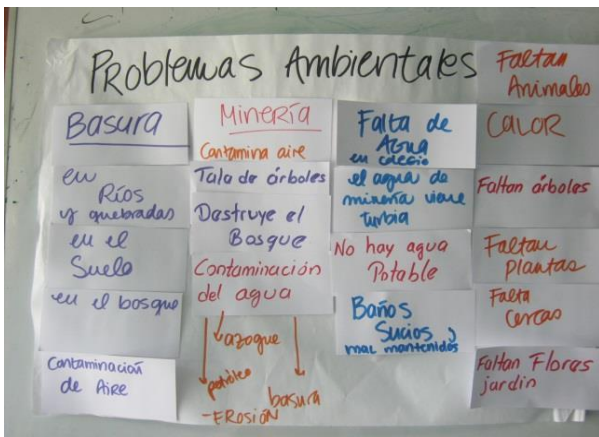 Problemas Ambientales
Basura
en
Ríos
y quebradas
en el
Suelo
en el bosque
Contaminación
de Aire
Minería
Contamina aire
Tala de árboles
Destruye el
Bosque
Contaminación
del agua
azogue
petróleo
basura
-EROSIÓN
Falta de
Agua
en colegio
el agua de
minería viene
turbia
No hay agua
Potable
Baños
Sucios y
mal mantenidos
Faltan
Animales
CALOR
Faltan árboles
Faltan
plantas
Falta
cercas
Faltan Flores
jardin